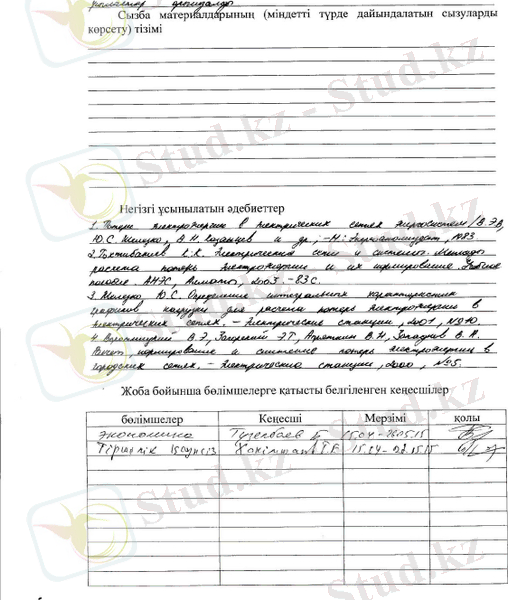 Сызба материалдарының (міндетті түрде дайындалатын сызуларды
көрсету) тізімі
Негізгі ұсынылатын әдебиеттер
1. Потери электроэнергии в электрических сетях энергосистем / В.Э.
Ю.С. Железко, В.Н. Казанцев и др., -М: Энергоатомиздат, 1983
2. Тохтибакиев К.К. Электрические сети и системы. Методы
расчета потерь электроэнергии и их нормирование. Учебное
пособие АИЭС, Алматы, 2003. -83с.
3. Железко Ю.С. Определение интегральных характеристик
графиков нагрузки для расчета потерь электроэнергии в
электрических сетях. - Электрические станции, 2001, №10.
4. Воротницкий В.Э, Загорский Э.Т, Апряткин В.Н, Западнов В.А.
Расчет, нормирование и снижение потерь электроэнергии в
городских сетях. - Электрические станции, 2000, №5.
Жоба бойынша бөлімшелерге қатысты белгіленген кеңесшілер
бөлімшелер Кеңесші Мерзімі қолы
экономика 15.04-
Тіршілік 15.04-
Stud.kz - Stud.kz
Stud.kz - Stud.kz
Stud.kz
Stud.kz